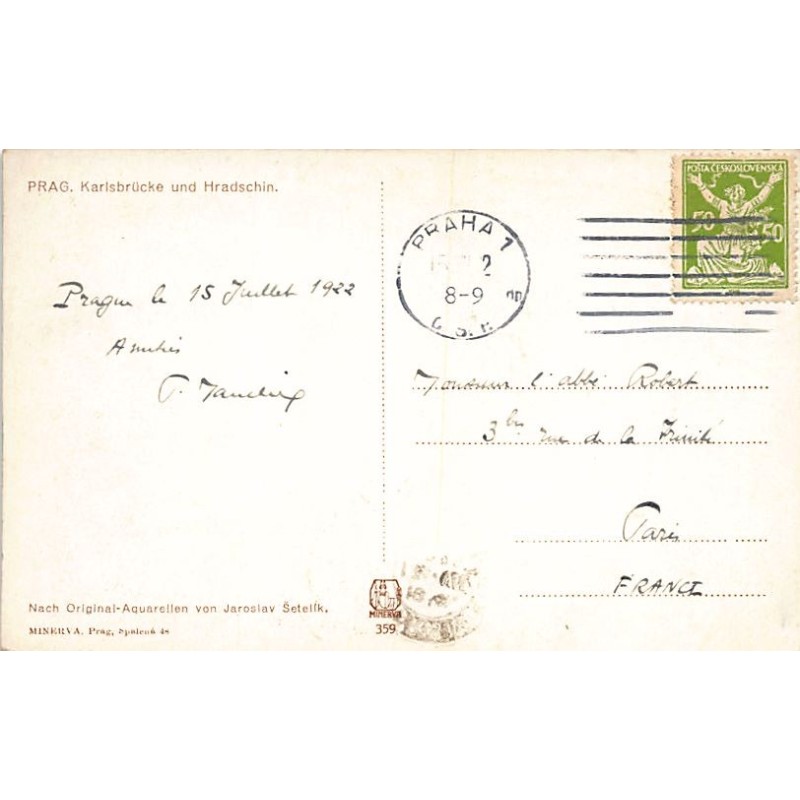 PRAG. Karlsbrücke und Hradschin.
POŠTA ČESKOSLOVENSKÁ
50 50
PRAHA 1
2
8-9
Č.S.R.
Prague le 15 Juillet 1922
Amitiés
Monsieur l'abbé Robert
3 bis rue de la Trinité
Paris
FRANCE
Nach Original-Aquarellen von Jaroslav Šetelík.
MINERVA, Prag, Spálená 48
MINERVA
359